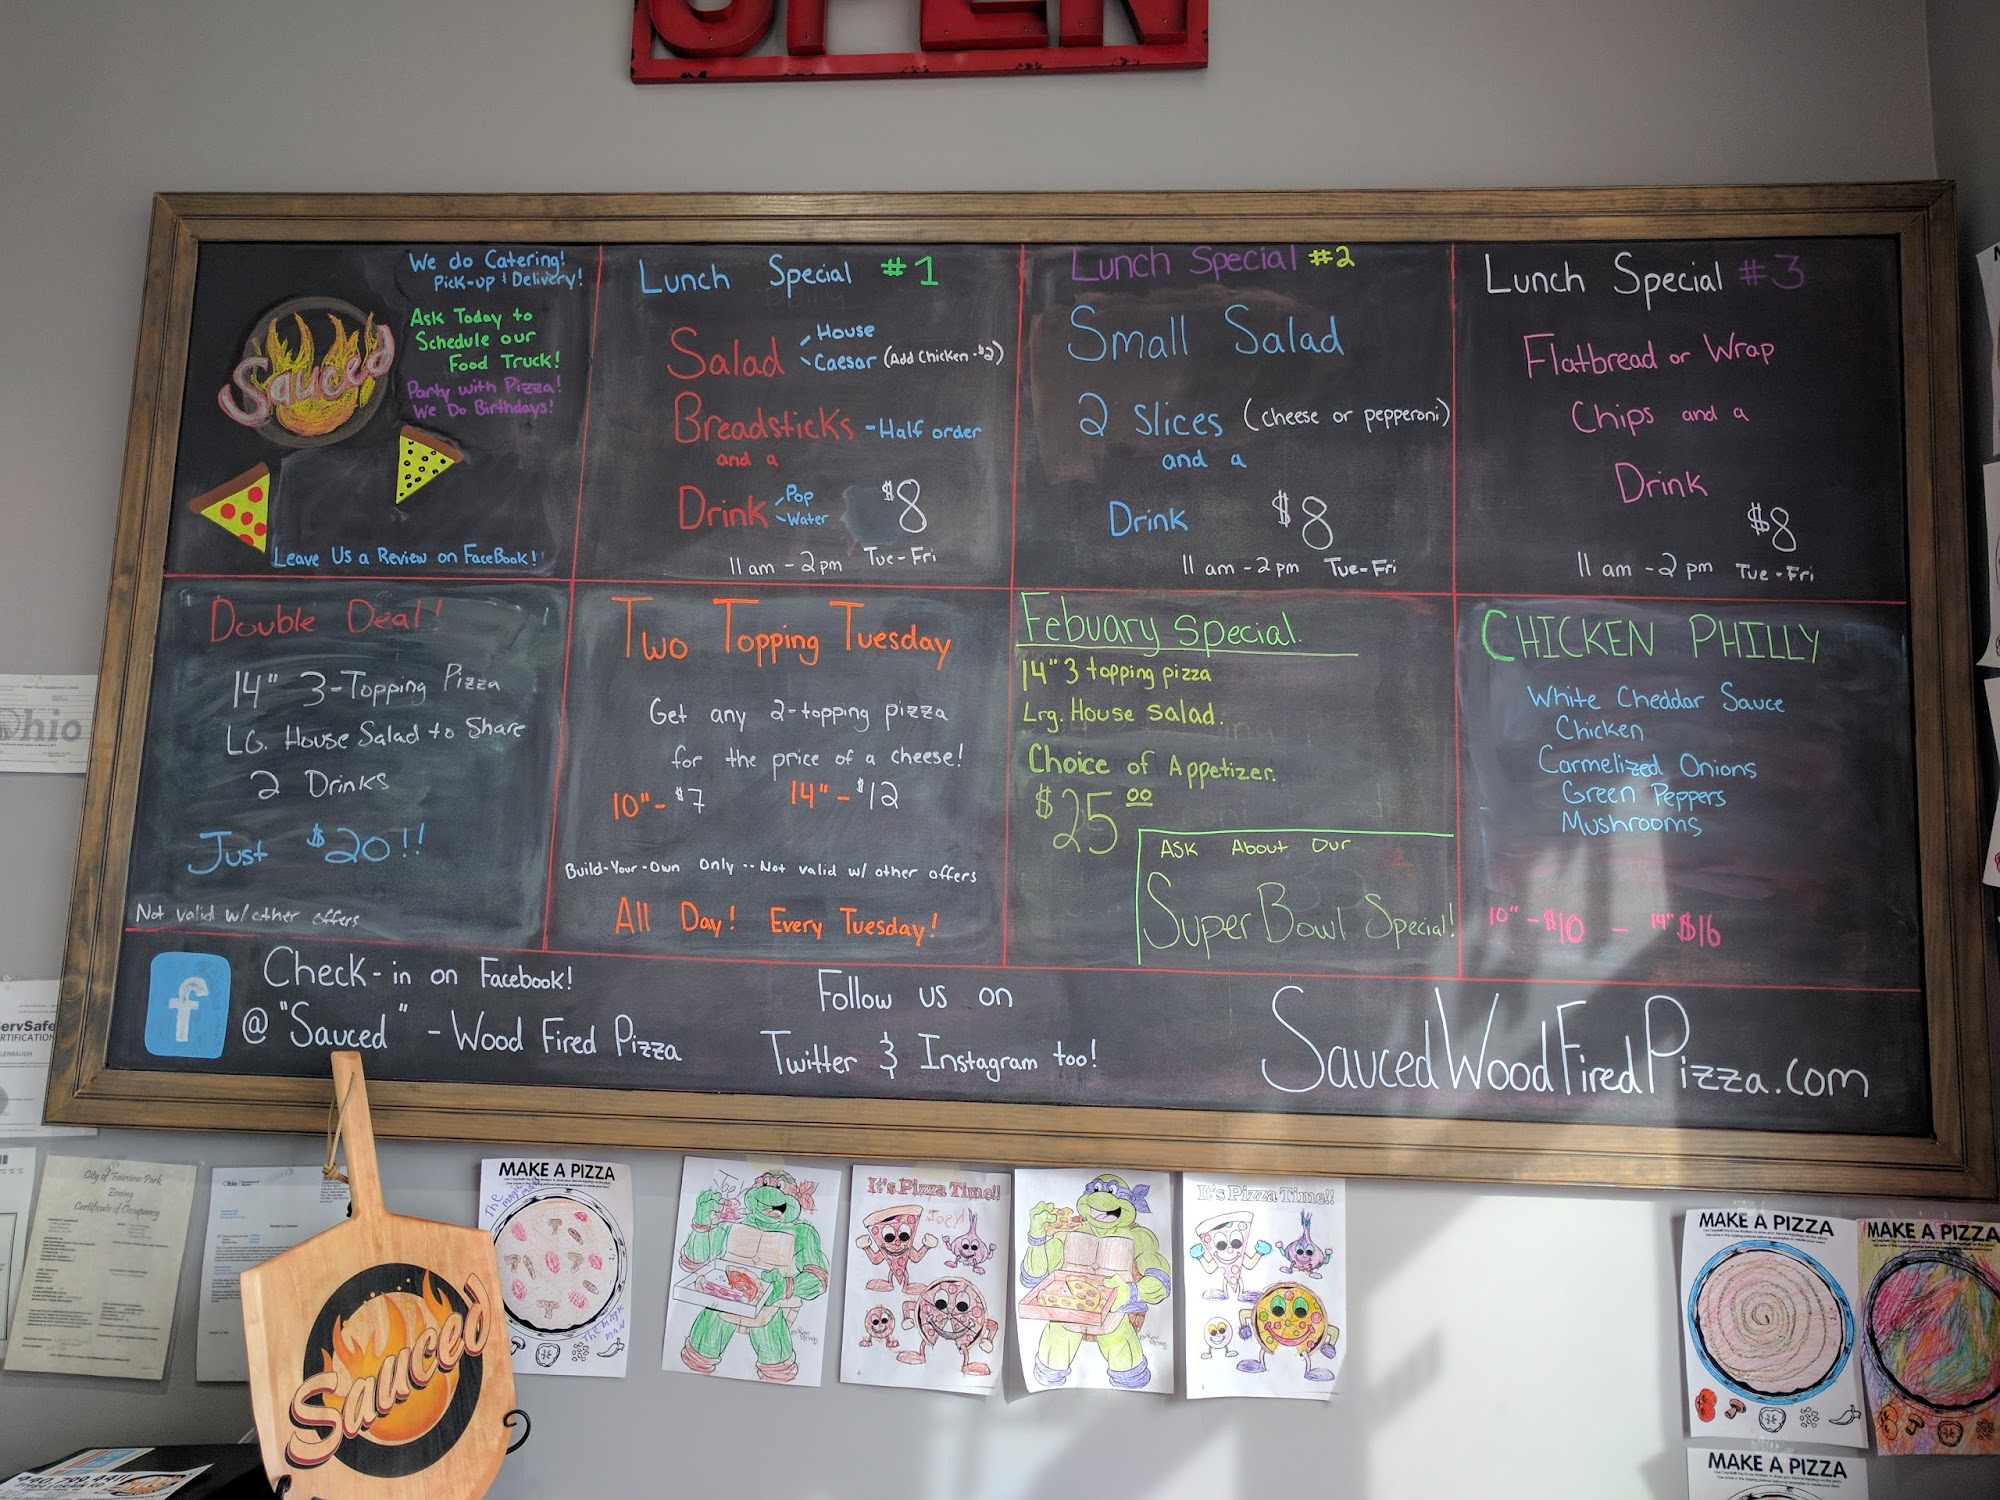 OPEN
Sauced
We do Catering!
Pick-up & Delivery!
Ask Today to
Schedule our
Food Truck!
Party with Pizza!
We Do Birthdays!
Leave Us a Review on FaceBook!
Lunch Special #1
Salad House
Caesar (Add Chicken - $2)
Breadsticks - Half order
and a
Drink Pop
Water
$8
11 am - 2 pm Tue - Fri
Lunch Special #2
Small Salad
2 Slices (cheese or pepperoni)
and a
Drink $8
11 am - 2 pm Tue - Fri
Lunch Special #3
Flatbread or Wrap
Chips and a
Drink
$8
11 am - 2 pm Tue - Fri
Double Deal!
14" 3-Topping Pizza
LG. House Salad to Share
2 Drinks
Just $20!!
Not valid w/ other offers
Two Topping Tuesday
Get any 2-topping pizza
for the price of a cheese!
10" - $7 14" - $12
Build-Your-Own Only -- Not valid w/ other offers
All Day! Every Tuesday!
Febuary Special.
14" 3 topping pizza
Lrg. House salad.
Choice of Appetizer.
$25 00
Ask About Our
Super Bowl Special!
CHICKEN PHILLY
White Cheddar Sauce
Chicken
Carmelized Onions
Green Peppers
Mushrooms
10" - $10 - 14" $16
f
Check-in on Facebook!
@ "Sauced" - Wood Fired Pizza
Follow us on
Twitter & Instagram too!
SaucedWoodFiredPizza.com
Ohio
ServSafe
CERTIFICATION
City of Fairview Park
Zoning
Certificate of Occupancy
Ohio
Sauced
MAKE A PIZZA
It's Pizza Time!!
It's Pizza Time!!
MAKE A PIZZA
MAKE A PIZZA
MAKE A PIZZA